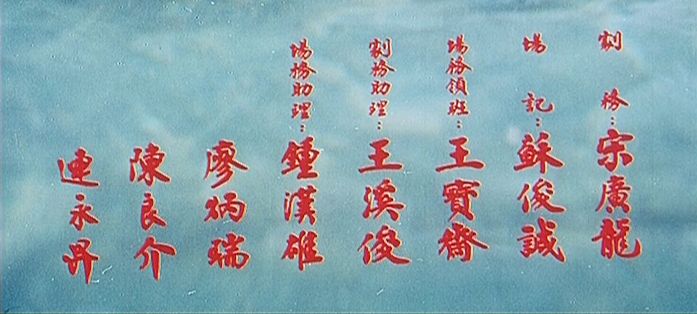 劇務：宋廣龍
場記：蘇俊誠
場務領班：王寶齋
劇務助理：王溪俊
場務助理：鍾漢雄
廖炳瑞
陳良介
連永昇